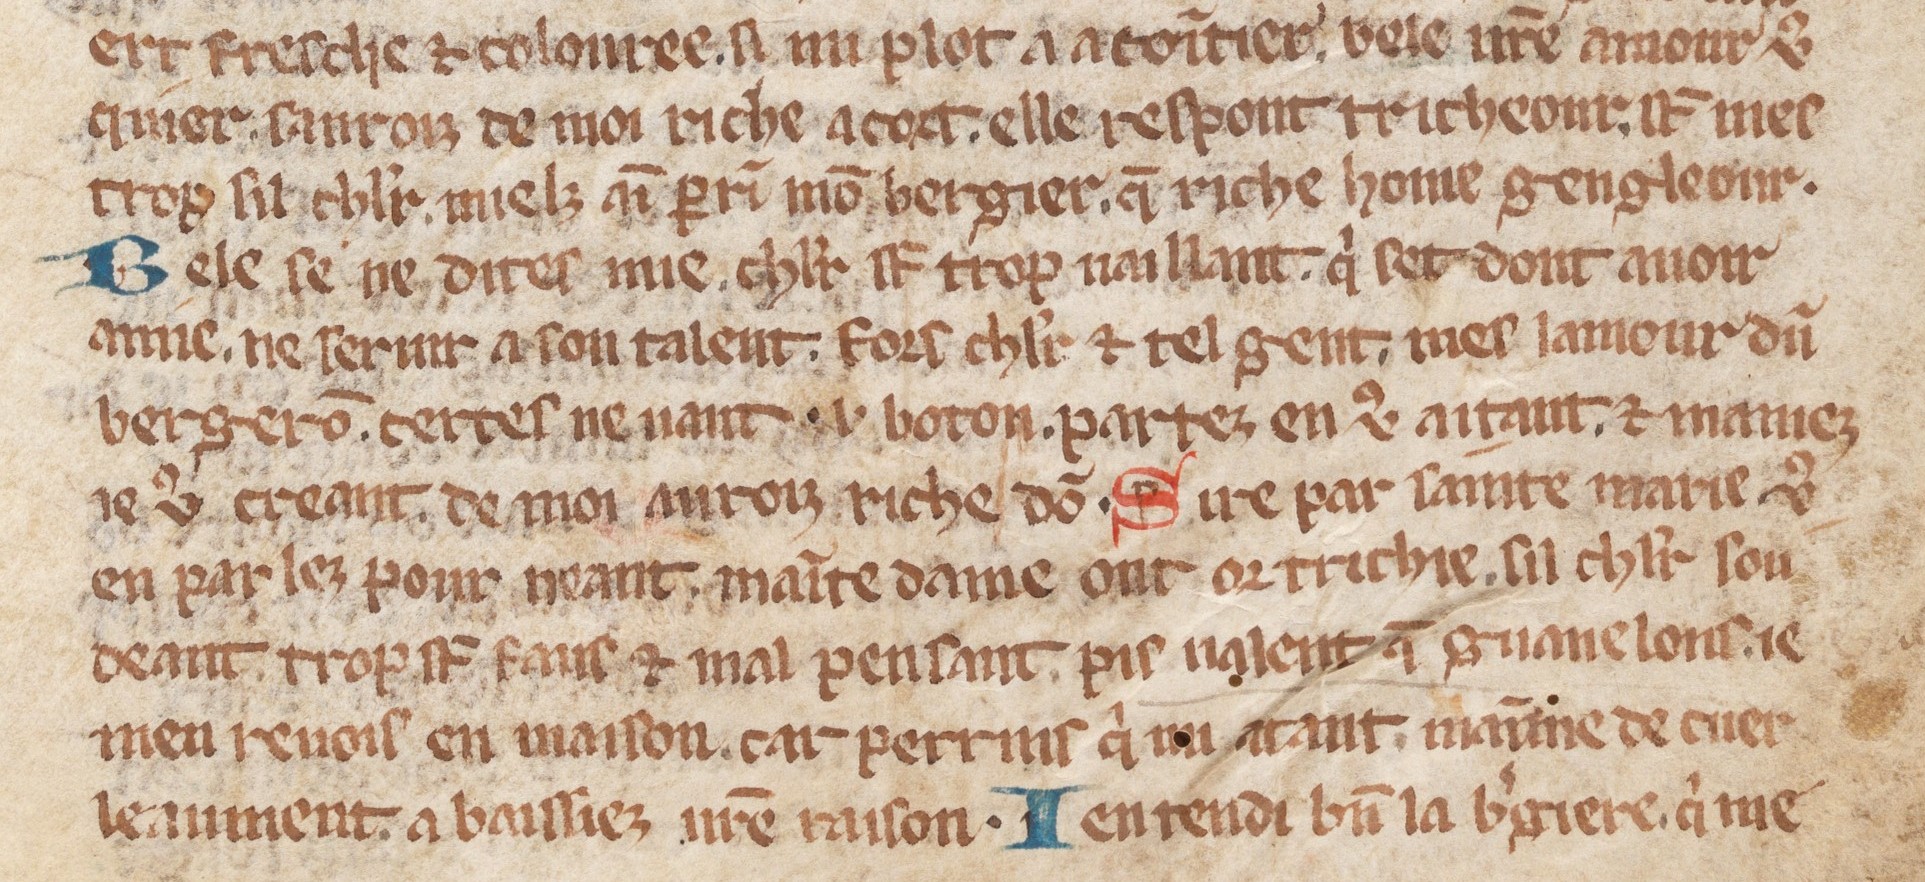 ert fresche ⁊ colouree. si mi plot a acoĩtier. bele ur̃e amour uͦ
quier. saurois de moi riche acort. elle respont tricheour. st̃ mes
trop sil chl̃r. miels aĩ ꝑrĩ mõ bergier. q̃ riche home gengleour.
Bele se ne dites mie. chl̃r st̃ trop uaillant. qͥ set dont auoir
amie. ne seruir a son talent. fors chl̃r ⁊ tel gent. mes lamour dũ
bergerõ. certes ne uaut . i. boton. partez en uͦ aitant. ⁊ mamez
ie uͦ creant. de moi aurois riche dõ. Sire par sainte marie. uͦ
en parlez pour neant. maĩte dame ont or trichie. sil chl̃r sou
deant. trop st̃ faus ⁊ mal pensant. pis ualent q̃ guanelons. ie
men reuois en maison. car perrins qͥ mi atant. maĩme de cuer
leaument. abaissiez ur̃e raison. Ientendi bñ la b'giere. qͥ me